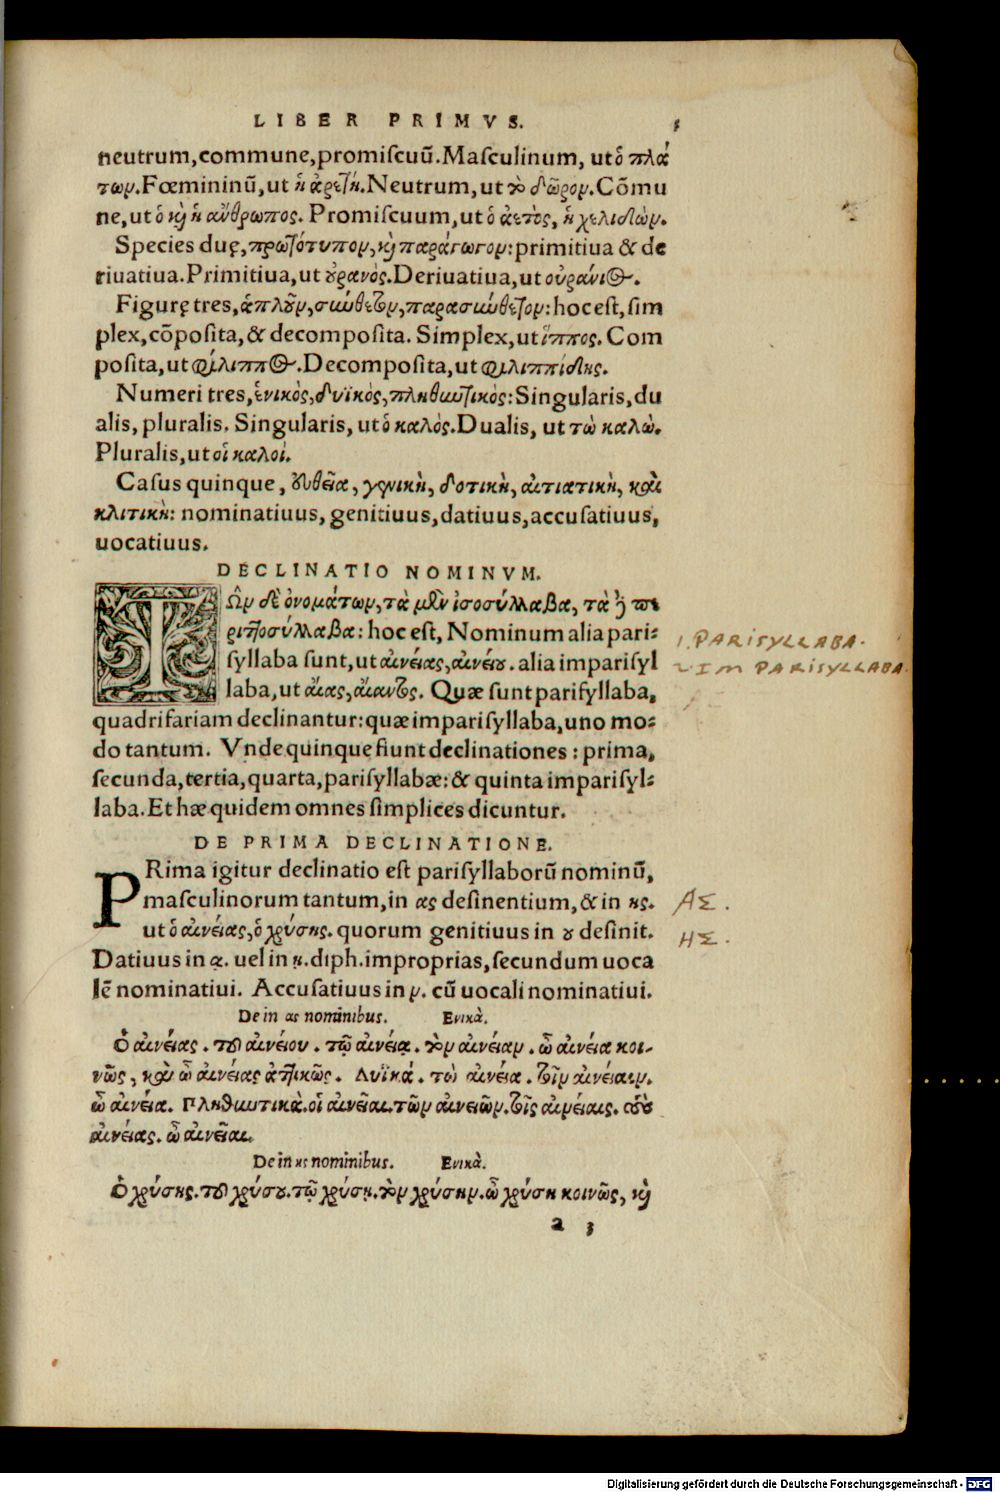 LIBER PRIMVS. 5
neutrum, commune, promiſcuũ. Maſculinum, ut ὁ πλά
των. Fœmininũ, ut ἡ ἀρετή. Neutrum, ut τὸ δῶρον. Cõmu
ne, ut ὁ κỳ ἡ ἄνθρωπος. Promiſcuum, ut ὁ ἀετὸς, ἡ χελιδών.
Species duę, πρωτότυπον, κỳ παράγωγον: primitiua & de
riuatiua. Primitiua, ut ȣρανὸς. Deriuatiua, ut οὐράνιος.
Figurę tres, ἁπλȣ͂ν, σύνθετον, παρασύνθετον: hoc eſt, ſim
plex, cõpoſita, & decompoſita. Simplex, ut ἵππος. Com
poſita, ut φίλιππος. Decompoſita, ut φιλιππίδης.
Numeri tres, ἑνικὸς, δυϊκὸς, πληθωτικὸς: Singularis, du
alis, pluralis. Singularis, ut ὁ καλὸς. Dualis, ut τὼ καλὼ.
Pluralis, ut οἱ καλοί.
Caſus quinque, ευθεῖα, γενικὴ, δοτικὴ, αἰτιατικὴ, καὶ
κλιτικὴ: nominatiuus, genitiuus, datiuus, accuſatiuus,
uocatiuus.
DECLINATIO NOMINVM.
TΩν δὲ ὀνομάτων, τὰ μὲν ἰσοσύλλαβα, τὰ ἢ πε
ριττοσύλλαβα: hoc eſt, Nominum alia pari-
ſyllaba ſunt, ut αἰνείας, αἰνείȣ. alia impariſyl
laba, ut αἴας, αἴαντος. Quæ ſunt pariſyllaba,
quadrifariam declinantur: quæ impariſyllaba, uno mo-
do tantum. Vnde quinque fiunt declinationes: prima,
ſecunda, tertia, quarta, pariſyllabæ: & quinta impariſyl-
laba. Et hæ quidem omnes ſimplices dicuntur.
1. PARISYLLABA.
2 IMPARISYLLABA.
DE PRIMA DECLINATIONE.
PRima igitur declinatio eſt pariſyllaborũ nominũ,
maſculinorum tantum, in ας deſinentium, & in ης.
ut ὁ αἰνείας, ὁ χρύσης. quorum genitiuus in ȣ deſinit.
Datiuus in ᾳ. uel in ῃ. diph. improprias, ſecundum uoca
lẽ nominatiui. Accuſatiuus in ν. cũ uocali nominatiui.
ΑΣ.
ΗΣ.
De in ας nominibus. Ενικά.
Ὁ αἰνείας. τοῦ αἰνείου. τῷ αἰνείᾳ. τὸν αἰνείαν. ὦ αἰνεία κοι-
νῶς, καὶ ὦ αἰνείας ἀττικῶς. Δυϊκά. τὼ αἰνεία. τοῖν αἰνείαιν.
ὦ αἰνεία. Πληθωτικὰ. οἱ αἰνεῖαι. τῶν αἰνειῶν. τοῖς αἰνείαις. τοὺς
αἰνείας. ὦ αἰνεῖαι.
De in ης nominibus. Ενικά.
Ὁ χρύσης. τοῦ χρύσȣ. τῷ χρύσῃ. τὸν χρύσην. ὦ χρύση κοινῶς, κỳ
a 3
Digitalisierung gefördert durch die Deutsche Forschungsgemeinschaft - DFG